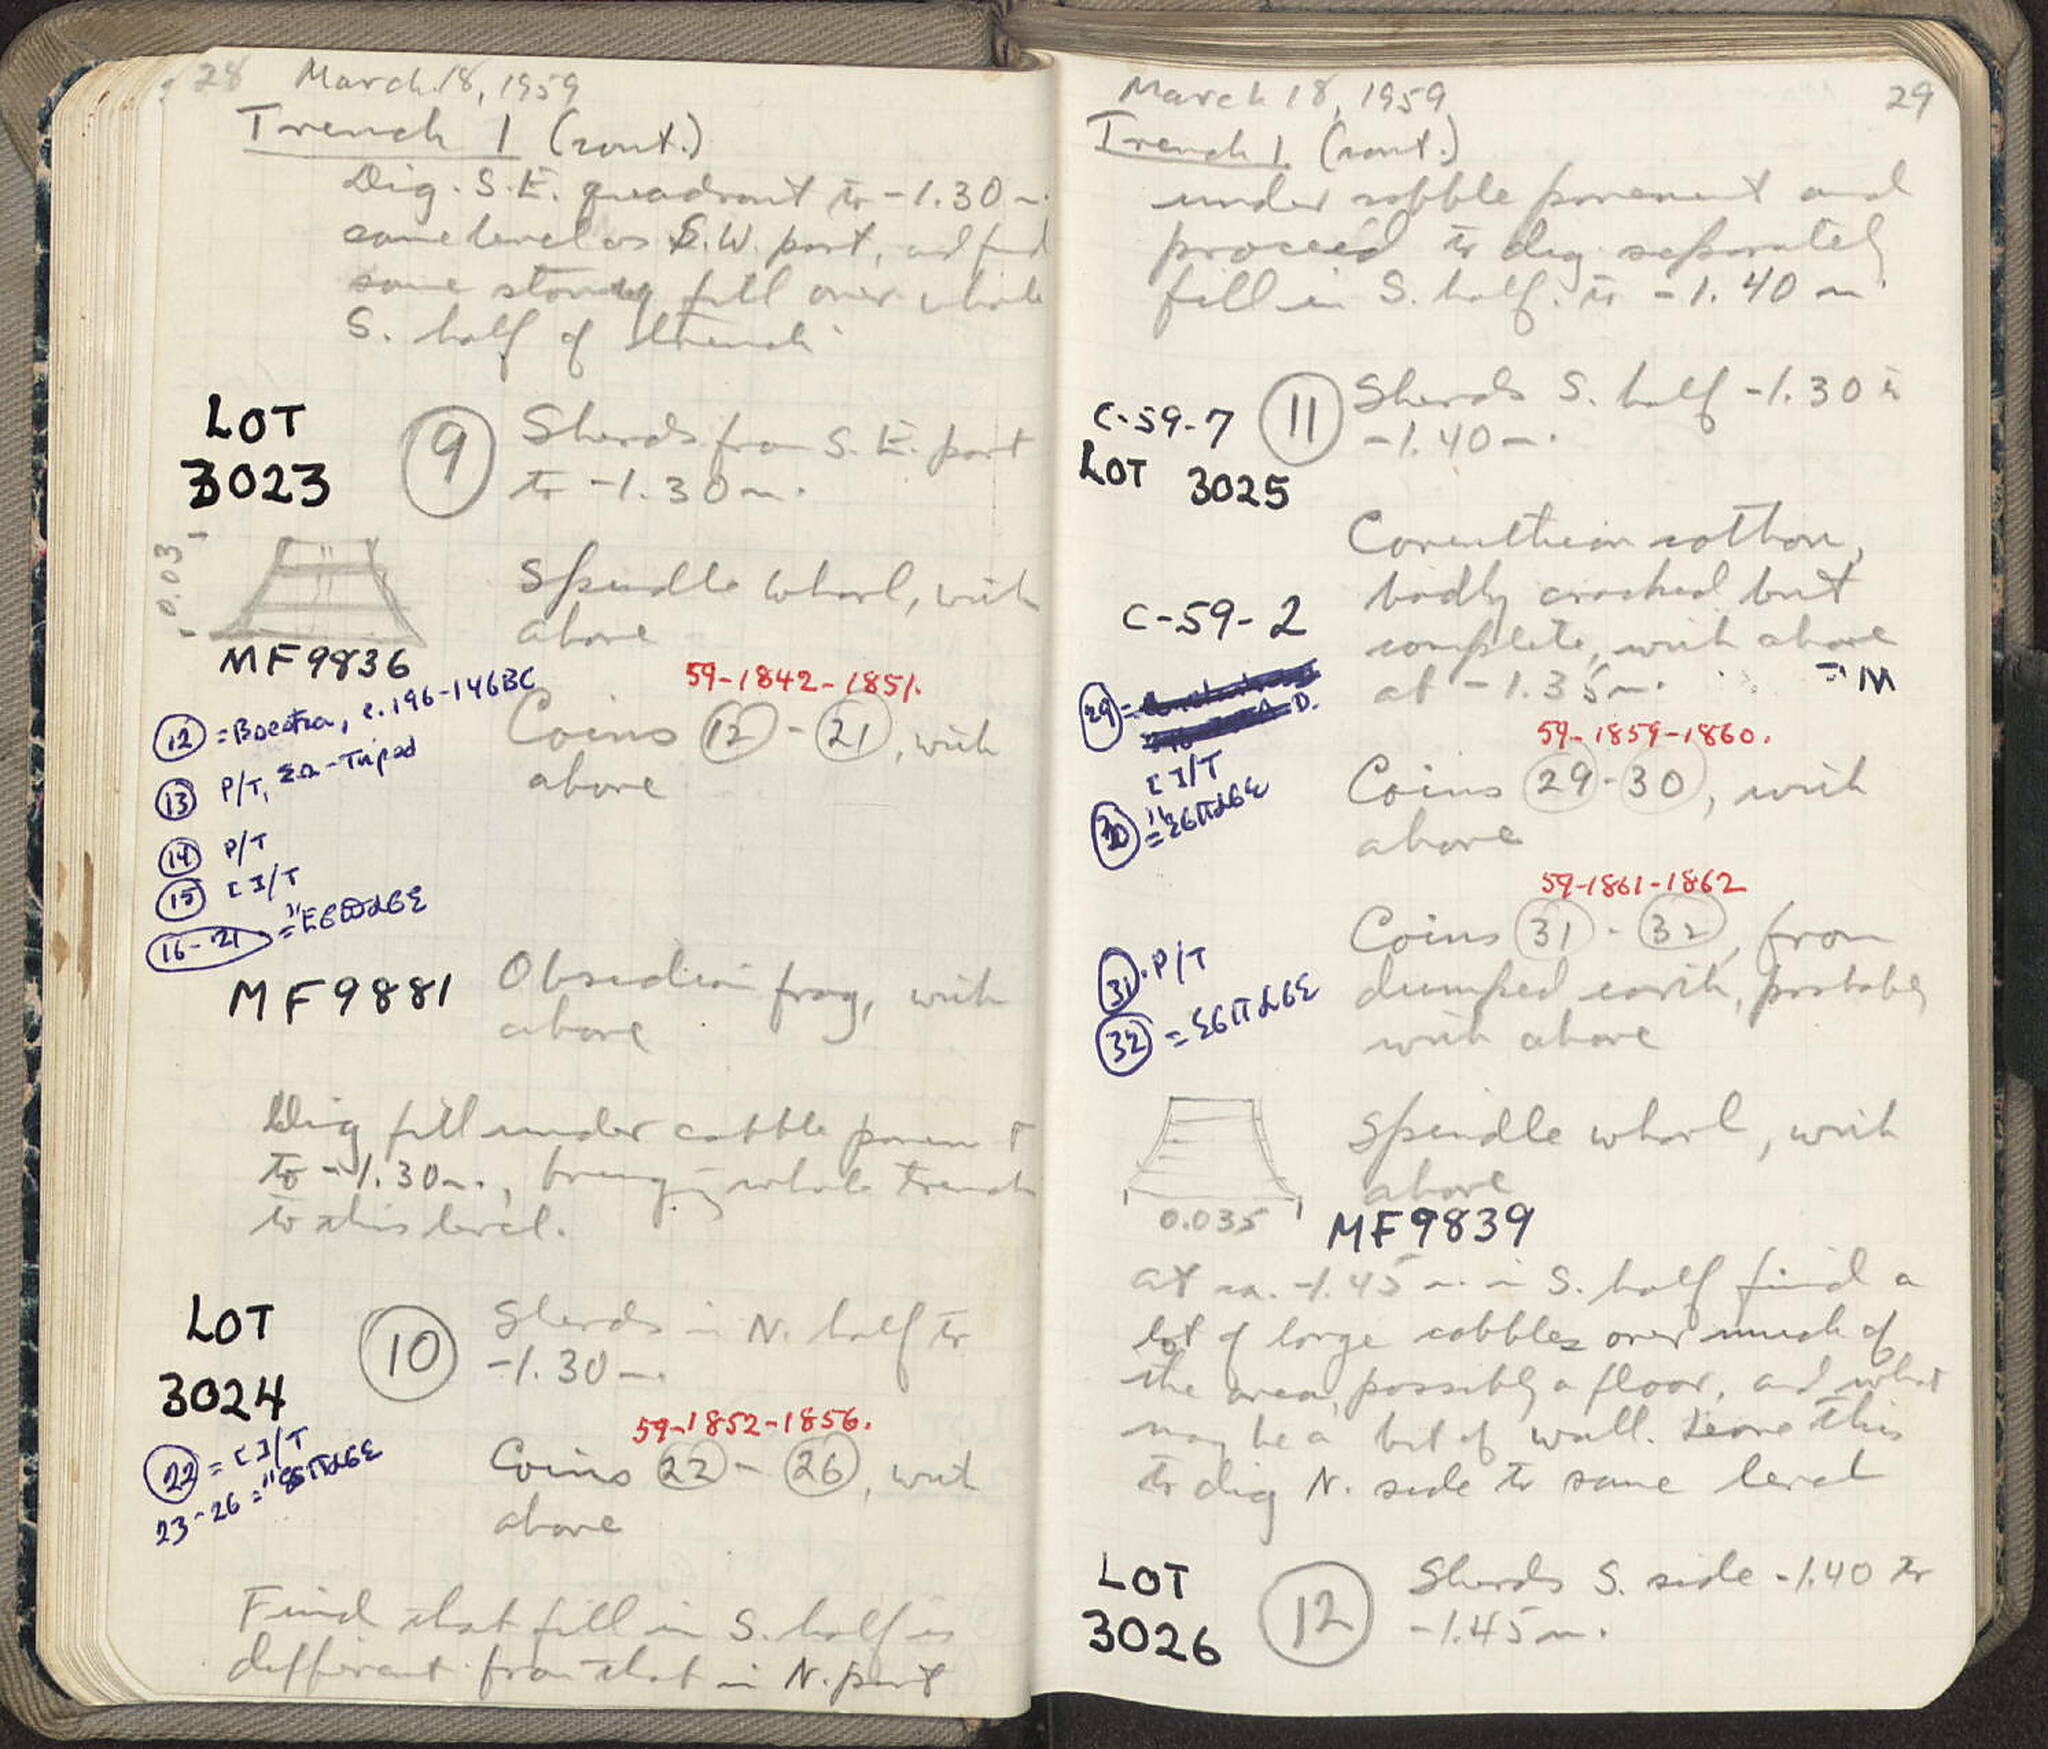 28 March 18, 1959
Trench 1 (cont.)
Dig. S.E. quadrant to -1.30 m.
same level as S.W. part, and find
same stoney fill over whole
S. half of trench
LOT
3023
9 Sherds from S.E. part
to -1.30 m.
0.03
Spindle whorl, with
above
MF 9836
59-1842-1851.
12 = Boeotia, c. 196-146BC
Coins 12 - 21, with
above
13 P/T, Σα-Tripod
14 P/T
15 [I/T
16-21 =
MF 9881
Obsidian frag, with
above
Dig fill under cobble
to -1.30 m., bringing whole trench
to this level.
LOT
3024
10 Sherds in N. half to
-1.30 m.
59-1852-1856.
22 = [I/T
23-26 =
Coins 22 - 26, with
above
Find that fill in S. half is
different from that in N. part
March 18, 1959 29
Trench 1 (cont.)
under cobble pavement and
proceed to dig separately
fill in S. half to -1.40 m
C-59-7
LOT 3025
11 Sherds S. half -1.30 to
-1.40 m.
C-59-2
Corinthian cothon,
badly cracked but
complete, with above
at -1.35 m.
29 =
[I/T
30 =
59-1859-1860.
Coins 29-30, with
above
59-1861-1862
31 P/T
32 =
Coins 31 - 32, from
dumped earth, probably
with above
Spindle whorl, with
above
0.035
MF 9839
At ca. -1.45 m. in S. half find a
lot of large cobbles over much of
the area, possibly a floor, and what
may be a bit of wall. Leave this
to dig N. side to same level
LOT
3026
12 Sherds S. side -1.40 to
-1.45 m.